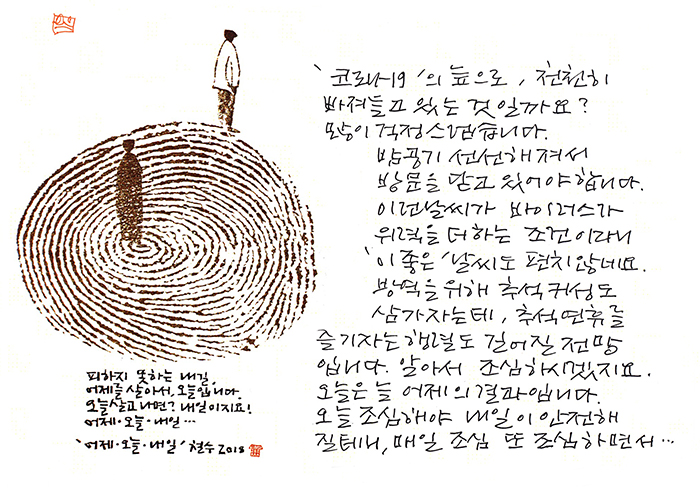 피하지 못하는 내길.
어제를 살아서, 오늘입니다.
오늘 살고나면? 내일이지요!
어제·오늘·내일…
'어제·오늘·내일' 철수 2018
'코로나19'의 늪으로, 천천히
빠져들고 있는 것일까요?
모두들 걱정스럽습니다.
밤공기 선선해져서
방문을 닫고 있어야합니다.
이런날씨가 바이러스가
위력을 더하는 조건이라니
'이 좋은' 날씨도 편치않네요.
방역을위해 추석귀성도
삼가자는데, 추석연휴를
즐기자는행렬도 길어질 전망
입니다. 알아서 조심하시겠지요.
오늘은 늘 어제의 결과입니다.
오늘 조심해야 내일이 안전해
질테니, 매일 조심 또 조심하면서…